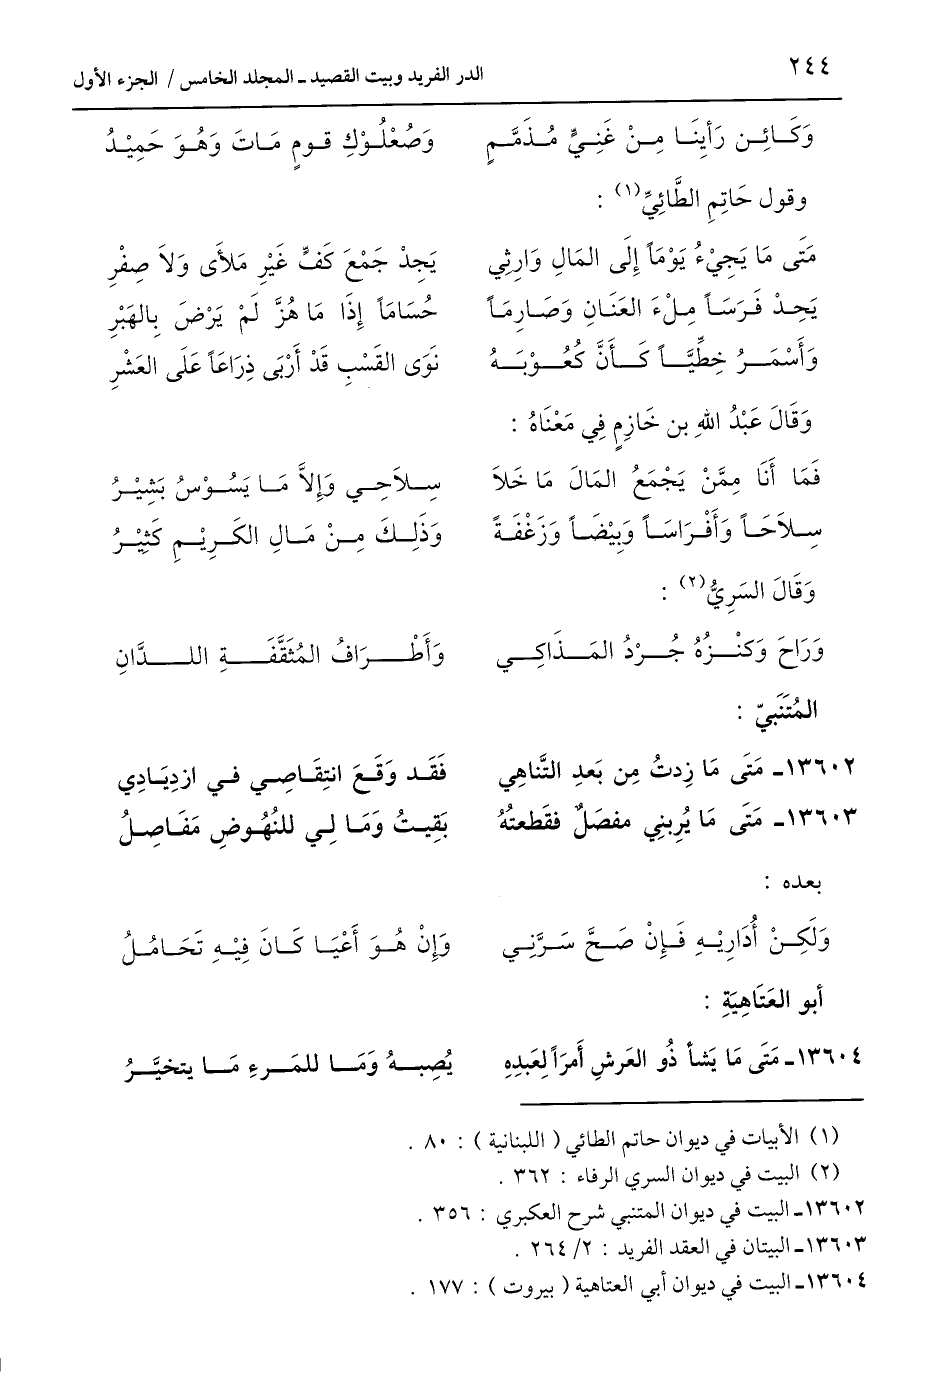 ٢٤٤ الدر الفريد وبيت القصيد ـ المجلد الخامس / الجزء الأول
وَكَـائِـن رَأَينَـا مِـنْ غَنِـيٍّ مُـذَمَّـمٍ وَصُعْلُـوْكِ قـومٍ مَـاتَ وَهُـوَ حَمِيْـدُ
وقول حَاتِمِ الطَّائِيِّ(١) :
مَتَى مَا يَجِيْءُ يَوْمَاً إِلَى المَالِ وَارِثِي يَجِدْ جَمْعَ كَفٍّ غَيْرِ مَلأَى وَلاَ صِفْرِ
يَجِدْ فَـرَسَـاً مِـلْءَ العَنَـانِ وَصَـارِمَـاً حُسَامَـاً إِذَا مَا هُزَّ لَمْ يَرْضَ بِالهَبْرِ
وَأَسْمَـرُ خِطِّيَّـاً كَـأَنَّ كُعُـوْبَـهُ نَوَى القَسْبِ قَدْ أَرْبَى ذِرَاعَاً عَلَى العَشْرِ
وَقَالَ عَبْدُ اللهِ بن خَازِمٍ فِي مَعْنَاهُ :
فَمَا أَنَا مِمَّنْ يَجْمَعُ المَالَ مَا خَلاَ سِـلاَحِـي وَإِلاَّ مَـا يَسُـوْسُ بَشِيْـرُ
سِـلاَحَـاً وَأَفْـرَاسَـاً وَبِيْضَـاً وَزَغْفَـةً وَذَلِـكَ مِـنْ مَـالِ الكَـرِيْـمِ كَثِيْـرُ
وَقَالَ السَرِيُّ(٢) :
وَرَاحَ وَكَنْـزُهُ جُـرْدُ المَـذَاكِـي وَأَطْـرَافُ المُثَقَّفَـةِ اللـدَّانِ
المُتَنَبيّ :
١٣٦٠٢ـ مَتَى مَا زِدتُ مِن بَعدِ التَّناهِي فَقَـد وَقَـعَ انتِقَـاصِـي فـي ازدِيَـادِي
١٣٦٠٣ـ مَتَى مَا يُرِبنِي مفصَلٌ فقَطعتُهُ بَقِيـتُ وَمَـا لِـي للنُهُـوضِ مَفَـاصِـلُ
بعده :
وَلَكِـنْ أُدَارِيْـهِ فَـإِنْ صَـحَّ سَـرَّنِـي وَإِنْ هُـوَ أَعْيَـا كَـانَ فِيْـهِ تَحَـامُـلُ
أبو العَتَاهِيَةِ :
١٣٦٠٤ـ مَتَى مَا يَشأ ذُو العَرشِ أَمرَاً لِعَبدِهِ يُصِبـهُ وَمَـا للمَـرءِ مَـا يتخيَّـرُ
(١) الأبيات في ديوان حاتم الطائي ( اللبنانية ) : ٨٠ .
(٢) البيت في ديوان السري الرفاء : ٣٦٢ .
١٣٦٠٢ـ البيت في ديوان المتنبي شرح العكبري : ٣٥٦ .
١٣٦٠٣ـ البيتان في العقد الفريد : ٢/ ٢٦٤ .
١٣٦٠٤ـ البيت في ديوان أبي العتاهية ( بيروت ) : ١٧٧ .